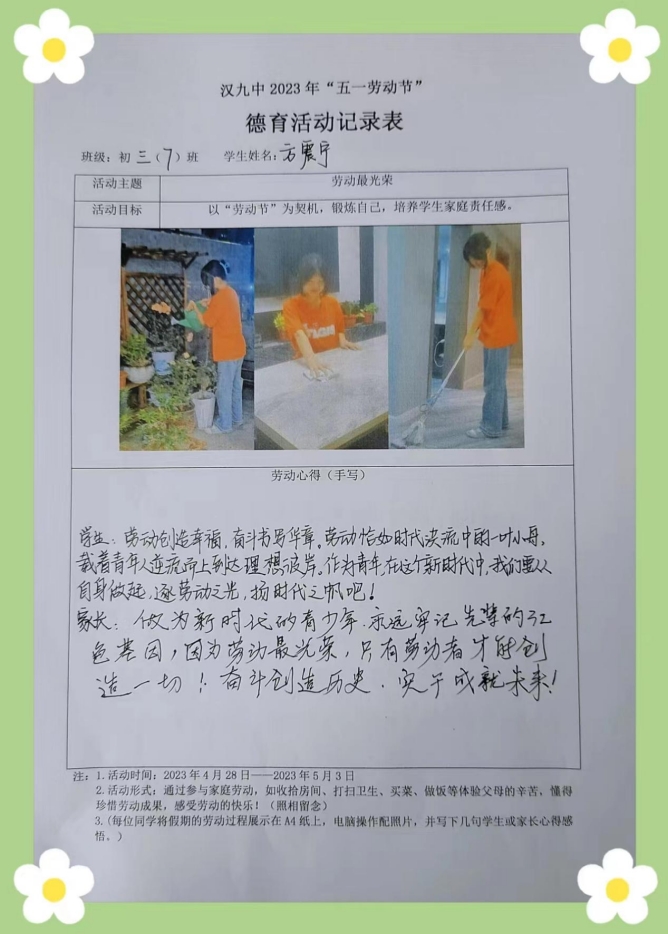 汉九中 2023 年“五一劳动节”
德育活动记录表
班级：初 三（7）班 学生姓名：方震宇
活动主题 劳动最光荣
活动目标 以“劳动节”为契机，锻炼自己，培养学生家庭责任感。
劳动心得（手写）
学生：劳动创造幸福，奋斗书写华章。劳动恰如时代洪流中的一叶小舟，
载着青年人逆流而上到达理想彼岸。作为青年，在这个新时代中，我们要从
自身做起，逐劳动之光，扬时代之帆吧！
家长：做为新时代的青少年．永远牢记先辈的红
色基因，因为劳动最光荣，只有劳动者才能创
造一切！奋斗创造历史．实干成就未来！
注：1.活动时间：2023 年 4 月 28 日——2023 年 5 月 3 日
2.活动形式：通过参与家庭劳动，如收拾房间、打扫卫生、买菜、做饭等体验父母的辛苦、懂得
珍惜劳动成果，感受劳动的快乐！（照相留念）
3.(每位同学将假期的劳动过程展示在 A4 纸上，电脑操作配照片，并写下几句学生或家长心得感
悟。）